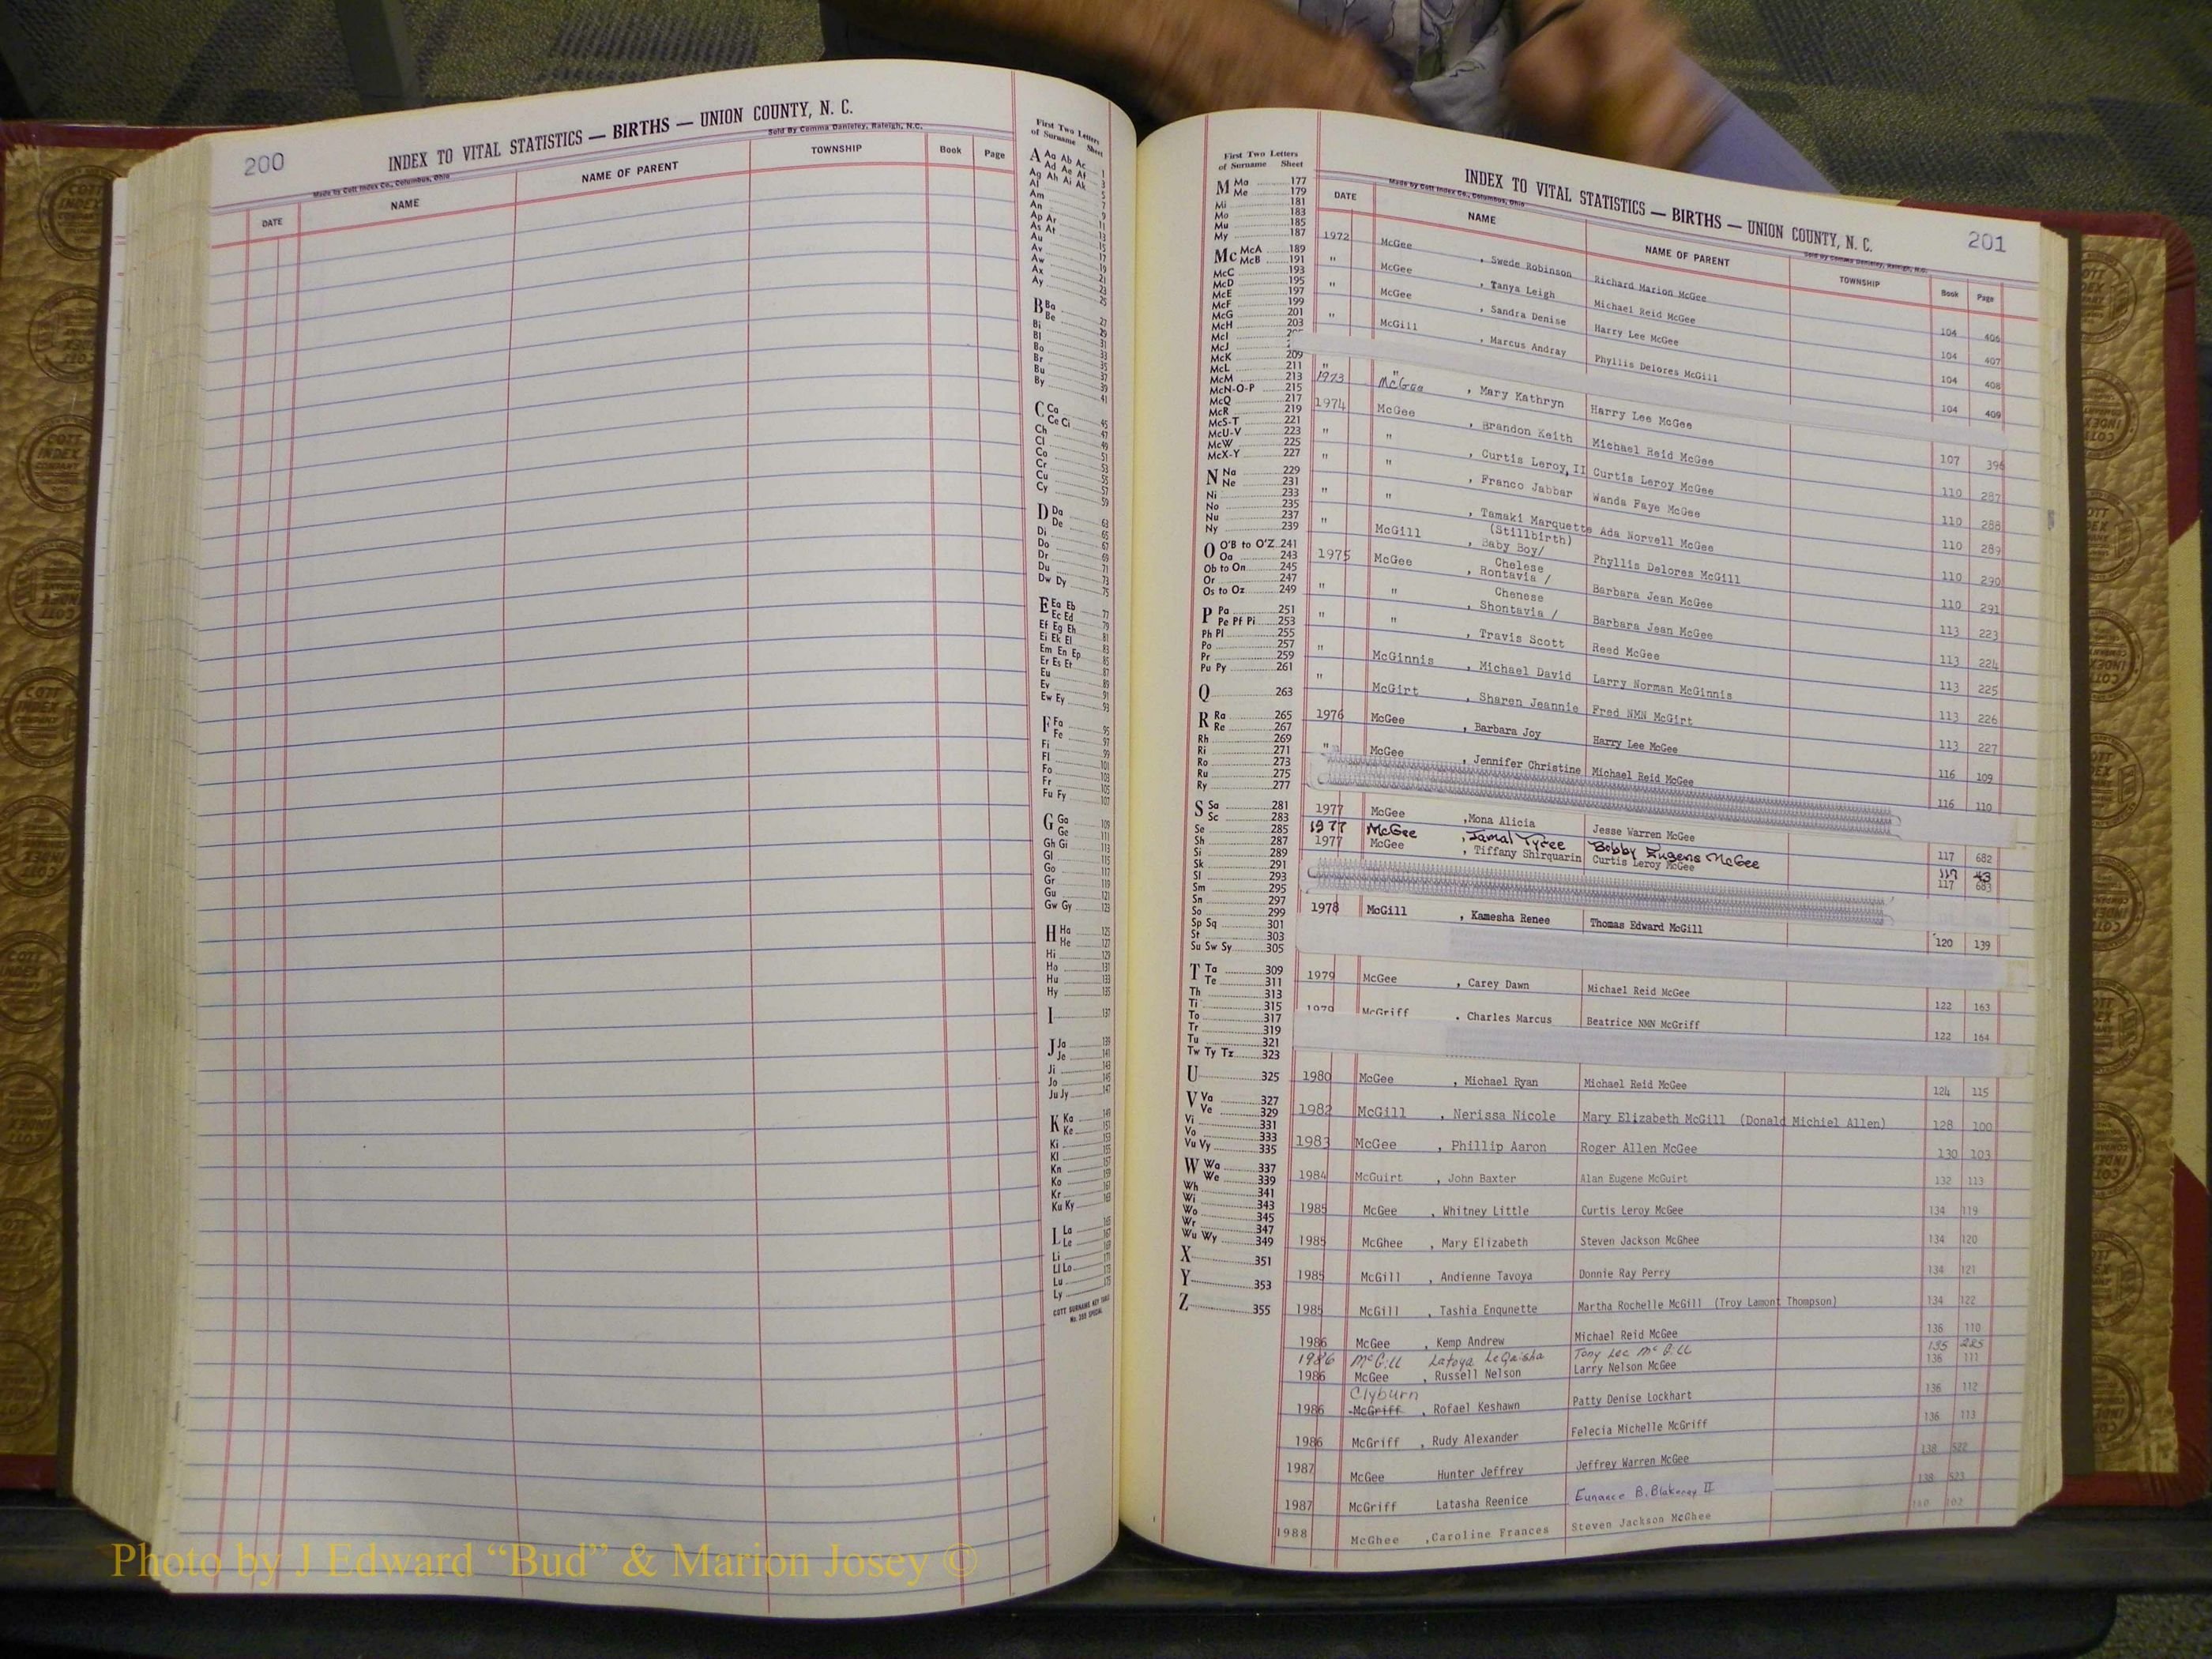 200
INDEX TO VITAL STATISTICS — BIRTHS — UNION COUNTY, N. C.
Made by Cott Index Co., Columbus, Ohio
Sold By Comma Danieley, Raleigh, N.C.
DATE NAME NAME OF PARENT TOWNSHIP Book Page
First Two Letters
of Surname Sheet
A Aa Ab Ac 1
Ad Ae Af 3
Ag Ah Ai Ak 5
Al 7
Am 9
An 11
Ap Ar 13
As At 15
Au 17
Av 19
Aw 21
Ax 23
Ay 25
B Ba 27
Be 29
Bi 31
Bl 33
Bo 35
Br 37
Bu 39
By 41
C Ca 45
Ce Ci 47
Ch 49
Cl 51
Co 53
Cr 55
Cu 57
Cy 59
D Da 63
De 65
Di 67
Do 69
Dr 71
Du 73
Dw Dy 75
E Ea Eb 77
Ec Ed 79
Ef Eg Eh 81
Ei Ek El 83
Em En Ep 85
Er Es Et 87
Eu 89
Ev 91
Ew Ey 93
F Fa 95
Fe 97
Fi 99
Fl 101
Fo 103
Fr 105
Fu Fy 107
G Ga 109
Ge 111
Gh Gi 113
Gl 115
Go 117
Gr 119
Gu 121
Gw Gy 123
H Ha 125
He 127
Hi 129
Ho 131
Hu 133
Hy 135
I 137
J Ja 139
Je 141
Ji 143
Jo 145
Ju Jy 147
K Ka 149
Ke 151
Ki 153
Kl 155
Kn 157
Ko 159
Kr 161
Ku Ky 163
L La 165
Le 167
Li 169
Ll Lo 171
Lu 173
Ly 175
COTT SURNAME KEY TABLE
First Two Letters
of Surname Sheet
M Ma 177
Me 179
Mi 181
Mo 183
Mu 185
My 187
Mc McA 189
McB 191
McC 193
McD 195
McE 197
McF 199
McG 201
McH 203
McI
McJ
McK 209
McL 211
McM 213
McN-O-P 215
McQ 217
McR 219
McS-T 221
McU-V 223
McW 225
McX-Y 227
N Na 229
Ne 231
Ni 233
No 235
Nu 237
Ny 239
O O'B to O'Z 241
Oa 243
Ob to On 245
Or 247
Os to Oz 249
P Pa 251
Pe Pf Pi 253
Ph Pl 255
Po 257
Pr 259
Pu Py 261
Q 263
R Ra 265
Re 267
Rh 269
Ri 271
Ro 273
Ru 275
Ry 277
S Sa 281
Sc 283
Se 285
Sh 287
Si 289
Sk 291
Sl 293
Sm 295
Sn 297
So 299
Sp Sq 301
St 303
Su Sw Sy 305
T Ta 309
Te 311
Th 313
Ti 315
To 317
Tr 319
Tu 321
Tw Ty Tz 323
U 325
V Va 327
Ve 329
Vi 331
Vo 333
Vu Vy 335
W Wa 337
We 339
Wh 341
Wi 343
Wo 345
Wr 347
Wu Wy 349
X 351
Y 353
Z 355
INDEX TO VITAL STATISTICS — BIRTHS — UNION COUNTY, N. C.
201
Made by Cott Index Co., Columbus, Ohio
Sold By Comma Danieley, Raleigh, N.C.
DATE NAME NAME OF PARENT TOWNSHIP Book Page
1972 McGee , Swede Robinson Richard Marion McGee 104 406
" McGee , Tanya Leigh Michael Reid McGee 104 407
" McGee , Sandra Denise Harry Lee McGee 104 408
" McGill , Marcus Andray Phyllis Delores McGill 104 409
" "
1973 McGee , Mary Kathryn Harry Lee McGee 107 396
1974 McGee , Brandon Keith Michael Reid McGee 110 287
" " , Curtis Leroy, II Curtis Leroy McGee 110 288
" " , Franco Jabbar Wanda Faye McGee 110 289
" " , Tamaki Marquette Ada Norvell McGee 110 290
(Stillbirth)
" McGill , Baby Boy/ Phyllis Delores McGill 110 291
Chelese
1975 McGee , Rontavia / Barbara Jean McGee 113 223
Chenese
" " , Shontavia / Barbara Jean McGee 113 224
" " , Travis Scott Reed McGee 113 225
" McGinnis , Michael David Larry Norman McGinnis 113 226
" McGirt , Sharen Jeannie Fred NMN McGirt 113 227
1976 McGee , Barbara Joy Harry Lee McGee 116 109
" McGee , Jennifer Christine Michael Reid McGee 116 110
1977 McGee ,Mona Alicia Jesse Warren McGee 117 682
1977 McGee , Jamal Tyree Bobby Eugene McGee 117 43
1977 McGee , Tiffany Shirquarin Curtis Leroy McGee 117 683
1978 McGill , Kamesha Renee Thomas Edward McGill 120 139
1979 McGee , Carey Dawn Michael Reid McGee 122 163
1979 McGriff , Charles Marcus Beatrice NMN McGriff 122 164
1980 McGee , Michael Ryan Michael Reid McGee 124 115
1982 McGill , Nerissa Nicole Mary Elizabeth McGill (Donald Michiel Allen) 128 100
1983 McGee , Phillip Aaron Roger Allen McGee 130 103
1984 McGuirt , John Baxter Alan Eugene McGuirt 132 113
1985 McGee , Whitney Little Curtis Leroy McGee 134 119
1985 McGhee , Mary Elizabeth Steven Jackson McGhee 134 120
1985 McGill , Andienne Tavoya Donnie Ray Perry 134 121
1985 McGill , Tashia Enqunette Martha Rochelle McGill (Troy Lamont Thompson) 134 122
1986 McGee , Kemp Andrew Michael Reid McGee 136 110
1986 McGill Latoya LeQaisha Tony Lee McGill 135 225
1986 McGee , Russell Nelson Larry Nelson McGee 136 111
Clyburn
1986 McGriff , Rofael Keshawn Patty Denise Lockhart 136 112
1986 McGriff , Rudy Alexander Felecia Michelle McGriff 136 113
1987 McGee Hunter Jeffrey Jeffrey Warren McGee 138 522
1987 McGriff Latasha Reenice Eunance B. Blakeney II 138 523
1988 McGhee ,Caroline Frances Steven Jackson McGhee 102
Photo by J Edward “Bud” & Marion Josey ©